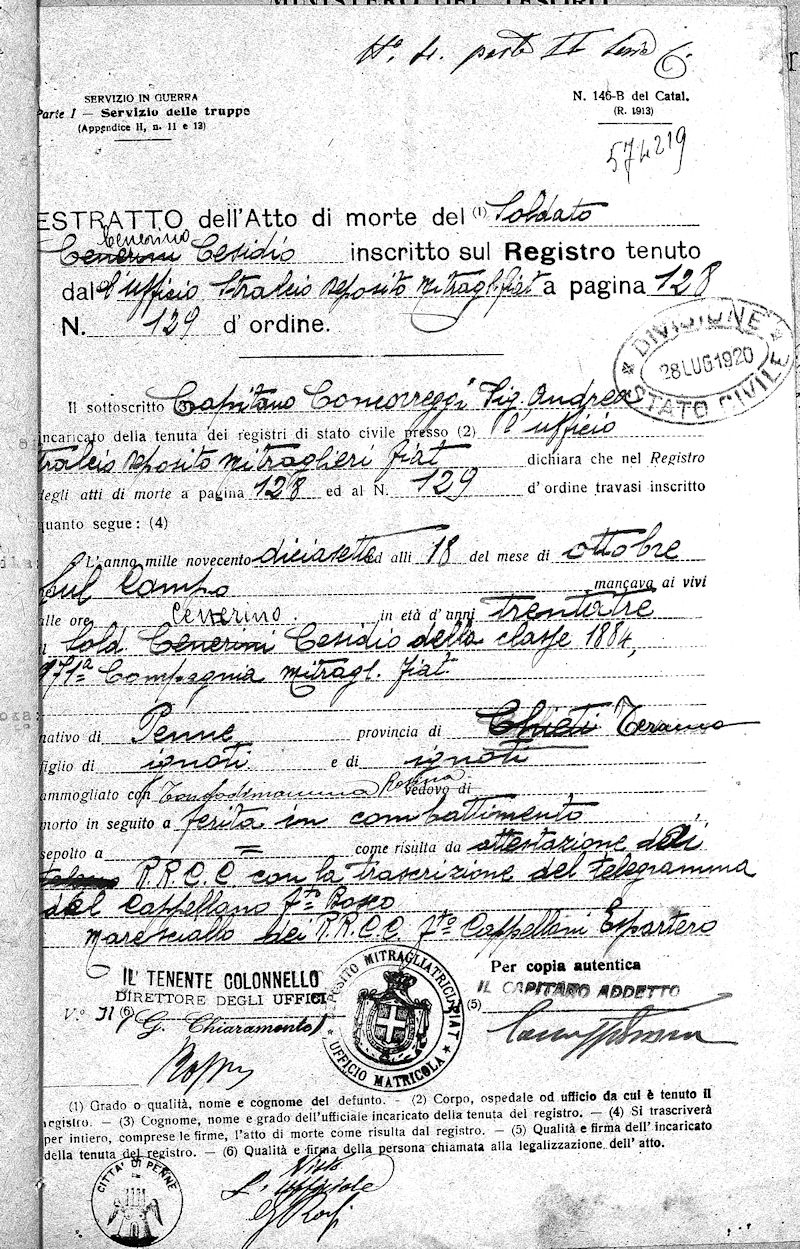 MINISTERO DEL TESORO
N. 4. parte II Serie C
SERVIZIO IN GUERRA
Parte I — Servizio delle truppe
(Appendice II, n. 11 e 13)
N. 146-B del Catal.
(R. 1913)
574219
ESTRATTO dell'Atto di morte del (1) Soldato
Cenerino
Cenerini Cesidio inscritto sul Registro tenuto
dal l'ufficio Stralcio Deposito Mitragl. Fiat a pagina 128
N. 129 d'ordine.
DIVISIONE STATO CIVILE
28 LUG 1920
Il sottoscritto (3) Capitano Concorreggi Sig. Andrea
incaricato della tenuta dei registri di stato civile presso (2) l'ufficio
tralcio Deposito Mitraglieri Fiat dichiara che nel Registro
degli atti di morte a pagina 128 ed al N. 129 d'ordine travasi inscritto
quanto segue: (4)
L'anno mille novecento diciasette ed alli 18 del mese di ottobre
sul Campo mancava ai vivi
alle ore in età d'anni trentatre
Cenerino
l Sold. Cenerini Cesidio della classe 1884,
971ª Compagnia Mitragl. Fiat
nativo di Penne provincia di Chieti Teramo
figlio di ignoti e di ignoti
ammogliato con Rosina vedovo di
morto in seguito a ferita in combattimento
sepolto a = come risulta da attestazione dei
R.R.C.C con la trascrizione del telegramma
del Cappellano Fto Bosco
Maresciallo dei R.R.C.C. Fto Cappelloni Espartero
IL TENENTE COLONNELLO
DIRETTORE DEGLI UFFICI
V.° Il (6)
(G. Chiaramonte)
DEPOSITO MITRAGLIATRICI FIAT
UFFICIO MATRICOLA
Per copia autentica
IL CAPITANO ADDETTO
(5)
(1) Grado o qualità, nome e cognome del defunto. — (2) Corpo, ospedale od ufficio da cui è tenuto il
registro. — (3) Cognome, nome e grado dell'ufficiale incaricato della tenuta del registro. — (4) Si trascriverà
per intiero, comprese le firme, l'atto di morte come risulta dal registro. — (5) Qualità e firma dell'incaricato
della tenuta del registro. — (6) Qualità e firma della persona chiamata alla legalizzazione dell'atto.
CITTA' DI PENNE
Visto
L'Ufficiale